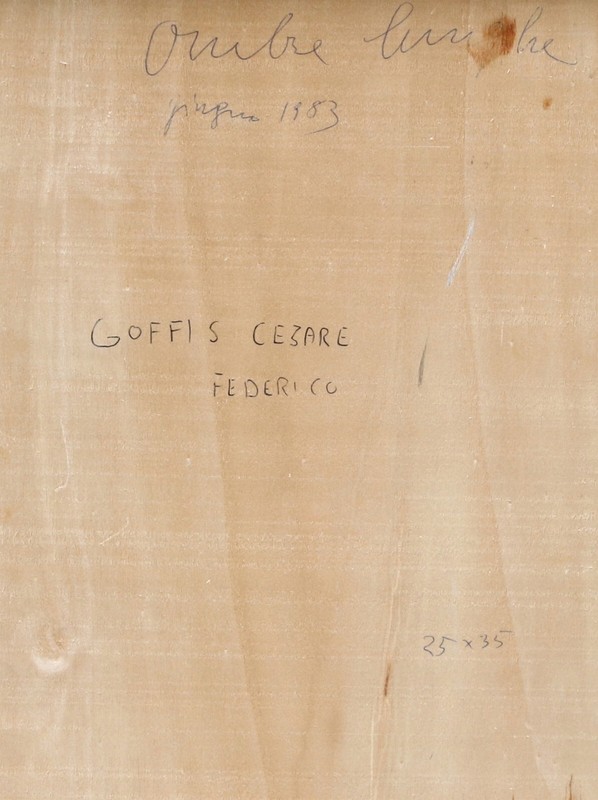 Ombre lunghe
giugno 1983
GOFFIS CESARE
FEDERICO
25 x 35